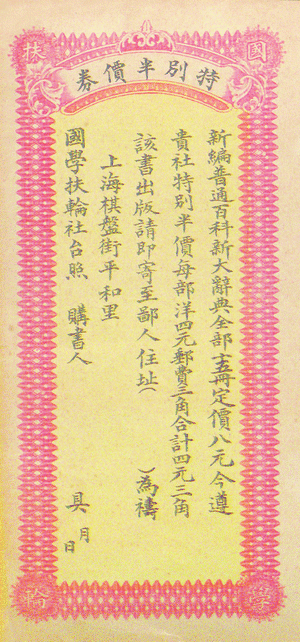 國學扶輪
特別半價券
新編普通百科新大辭典全部十五冊定價八元今遵
貴社特別半價每部洋四元郵費三角合計四元三角
該書出版請即寄至鄙人住址( )為禱
上海棋盤街平和里
國學扶輪社台照 購書人 具
月
日